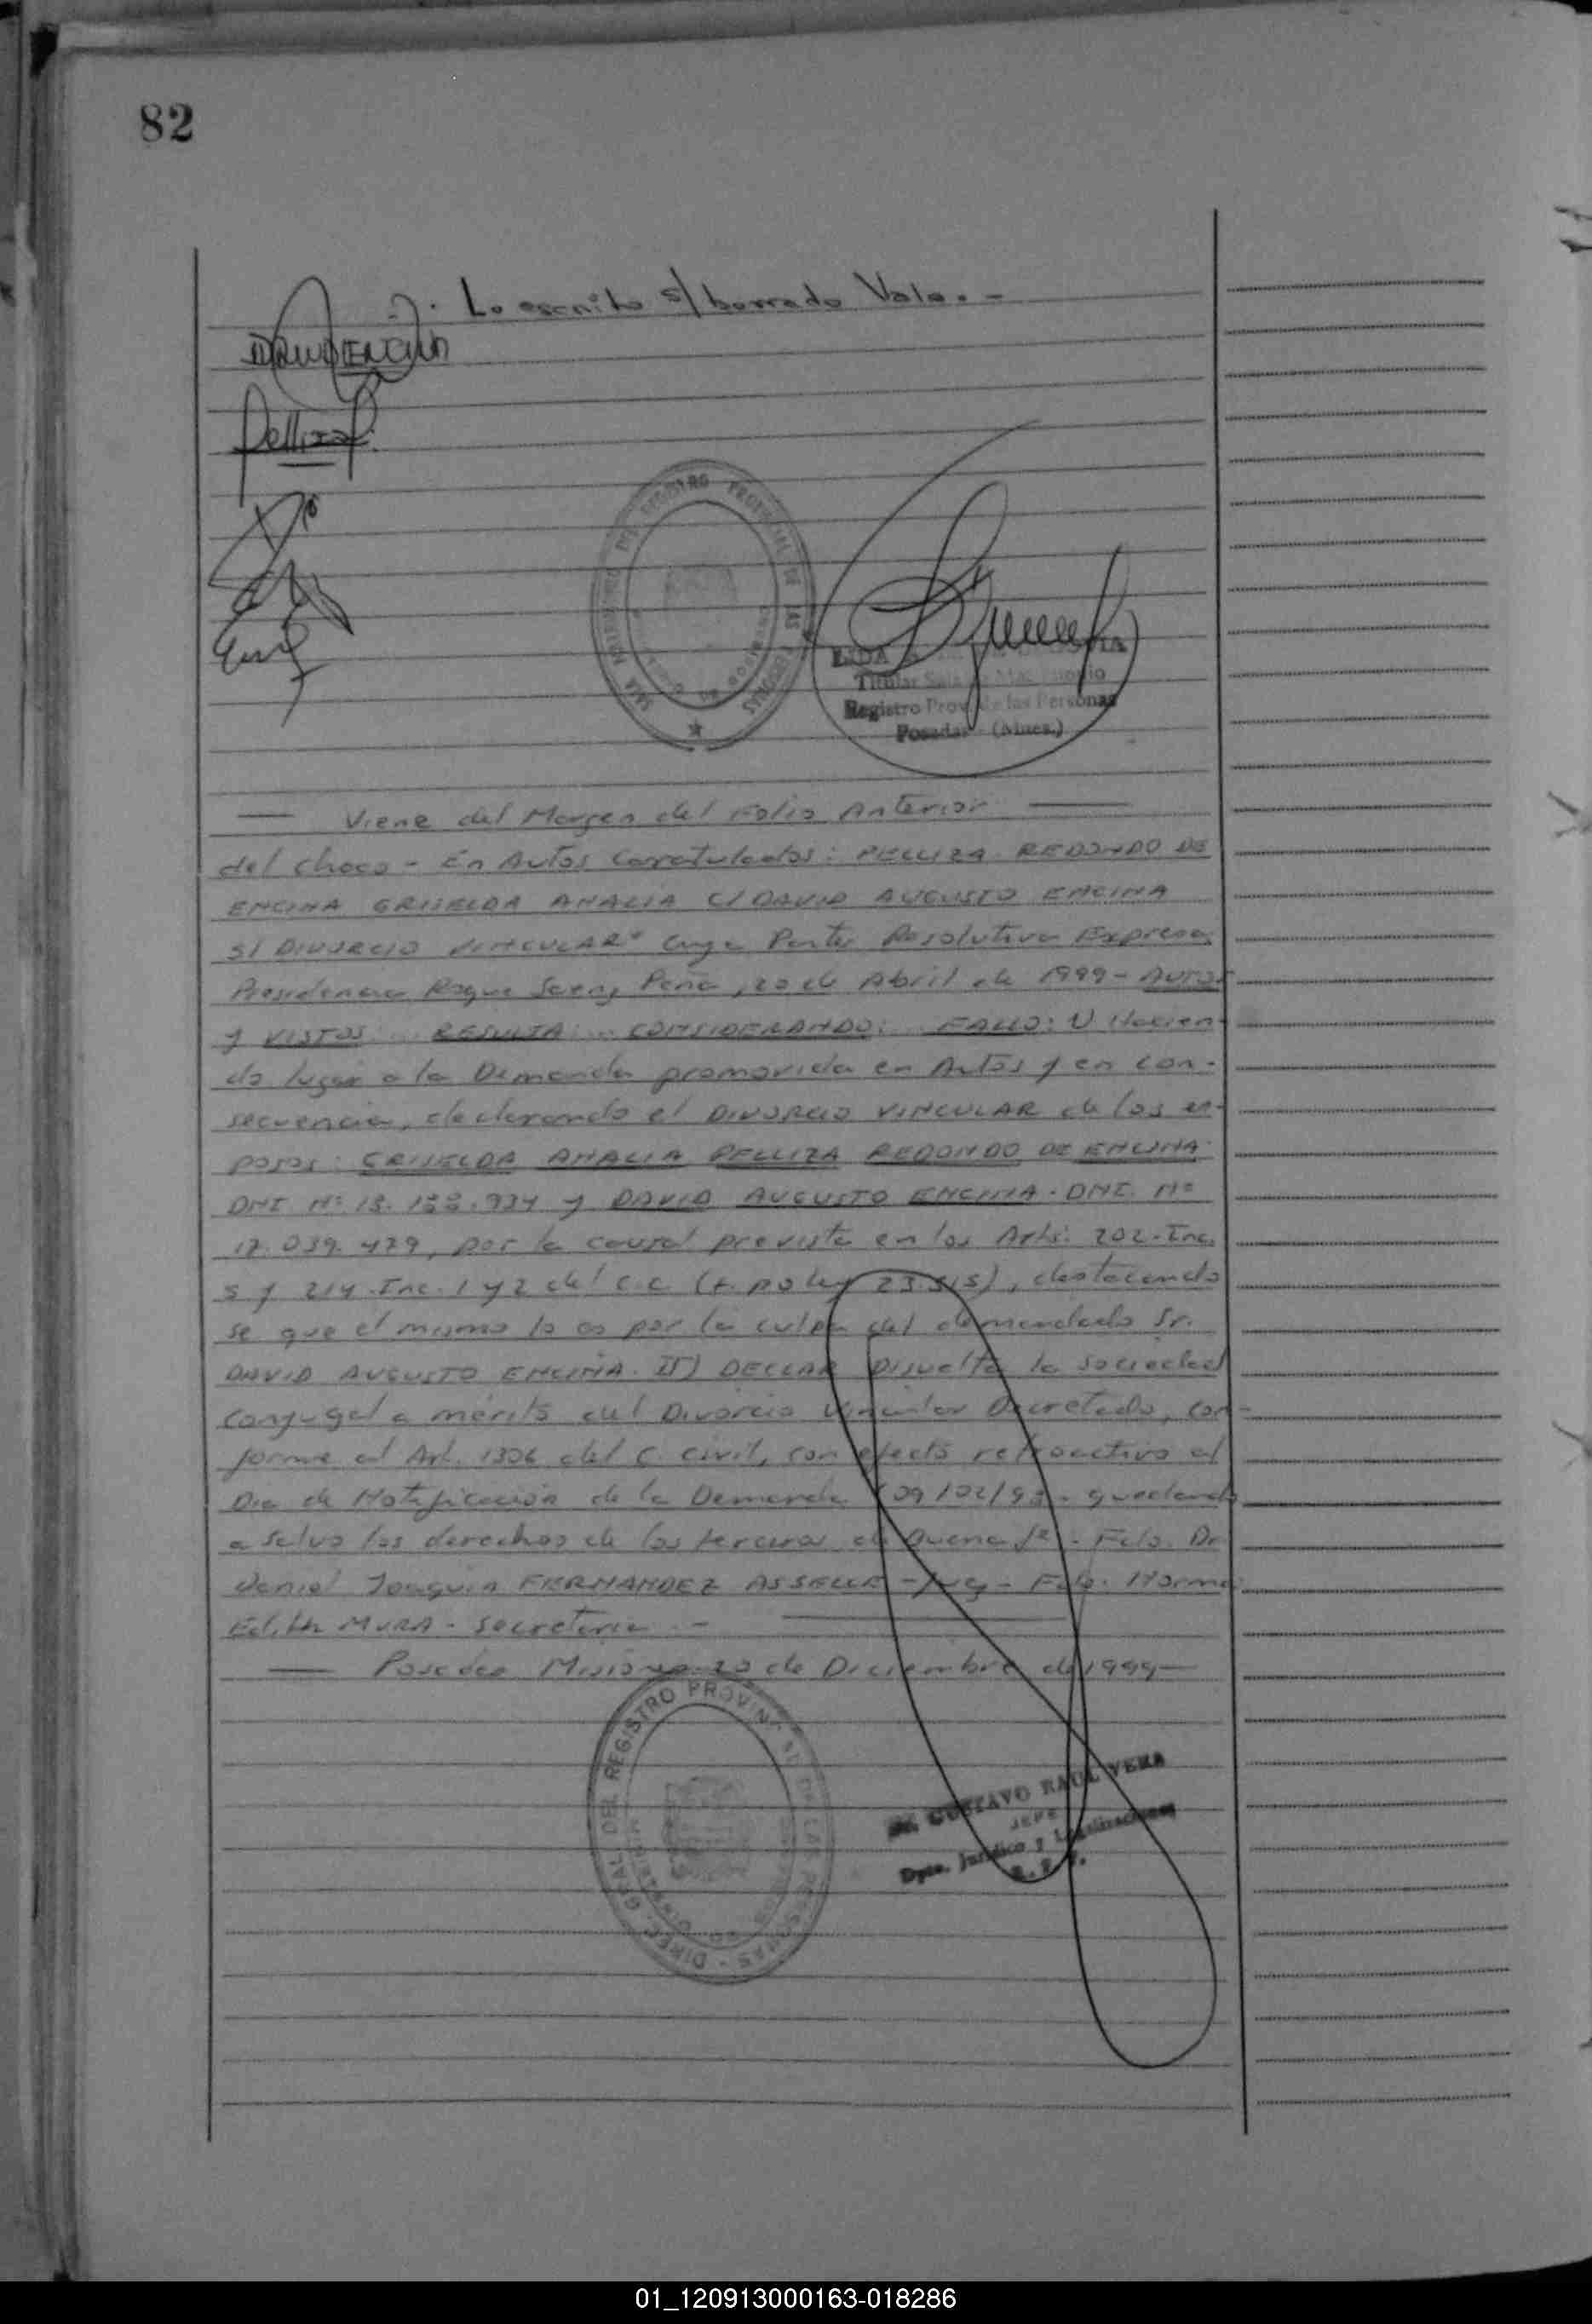 82
Lo escrito s/borrado Vale. -
DAVID ENCINA
Pelliza
SALA MATRIMONIO DEL REGISTRO PROVINCIAL DE LAS PERSONAS
LIDA
Titular Sala de Matrimonio
Registro Prov. de las Personas
Posadas - (Mnes.)
Viene del Margen del Folio Anterior
del Chaco - En Autos Caratulados: PELLIZA REDONDO DE
ENCINA GRISELDA AMALIA C/ DAVID AUGUSTO ENCINA
S/ DIVORCIO VINCULAR" Cuya Parte Resolutiva Expresa:
Presidencia Roque Saenz Peña, 20 de Abril de 1999 - AUTOS
y VISTOS: .. RESULTA: .. CONSIDERANDO: .. FALLO: I) Hacien-
do lugar a la Demanda promovida en Autos y en con-
secuencia, declarando el DIVORCIO VINCULAR de los es-
posos: GRISELDA AMALIA PELLIZA REDONDO DE ENCINA
DNI Nº y DAVID AUGUSTO ENCINA - DNI. Nº
17.039.479, por la causal prevista en los Arts: 202 - Inc.
5 y 214 - Inc. 1 y 2 del C.C (t. po ley 23.515), destacando
se que el mismo lo es por la culpa del demandado Sr.
DAVID AUGUSTO ENCINA. II) DECLAR Disuelta la Sociedad
Conyugal a mérito del Divorcio Vincular Decretado, con-
forme al Art. 1306 del C. Civil, con efecto retroactivo al
Dia de Notificación de la Demanda (09/02/ - quedando
a salvo los derechos de los terceros de Buena fe - Fdo. Dr
Daniel Joaquin FERNANDEZ ASSELLE - Juez - Fdo. Norma
Edith MURA - Secretaria -
Posadas Misiones 20 de Diciembre de 1999
DIREC. GRAL. DEL REGISTRO PROVINCIAL DE LAS PERSONAS
Dr. GUSTAVO RAUL VERA
JEFE
Dpto. Jurídico y Legalizaciones
R. P. P.
01_120913000163-018286